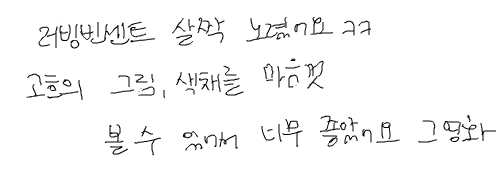 러빙빈센트 살짝 노렸어요 ㅋㅋ
고흐의 그림, 색채를 마음껏
볼 수 있어서 너무 좋았어요 그 영화